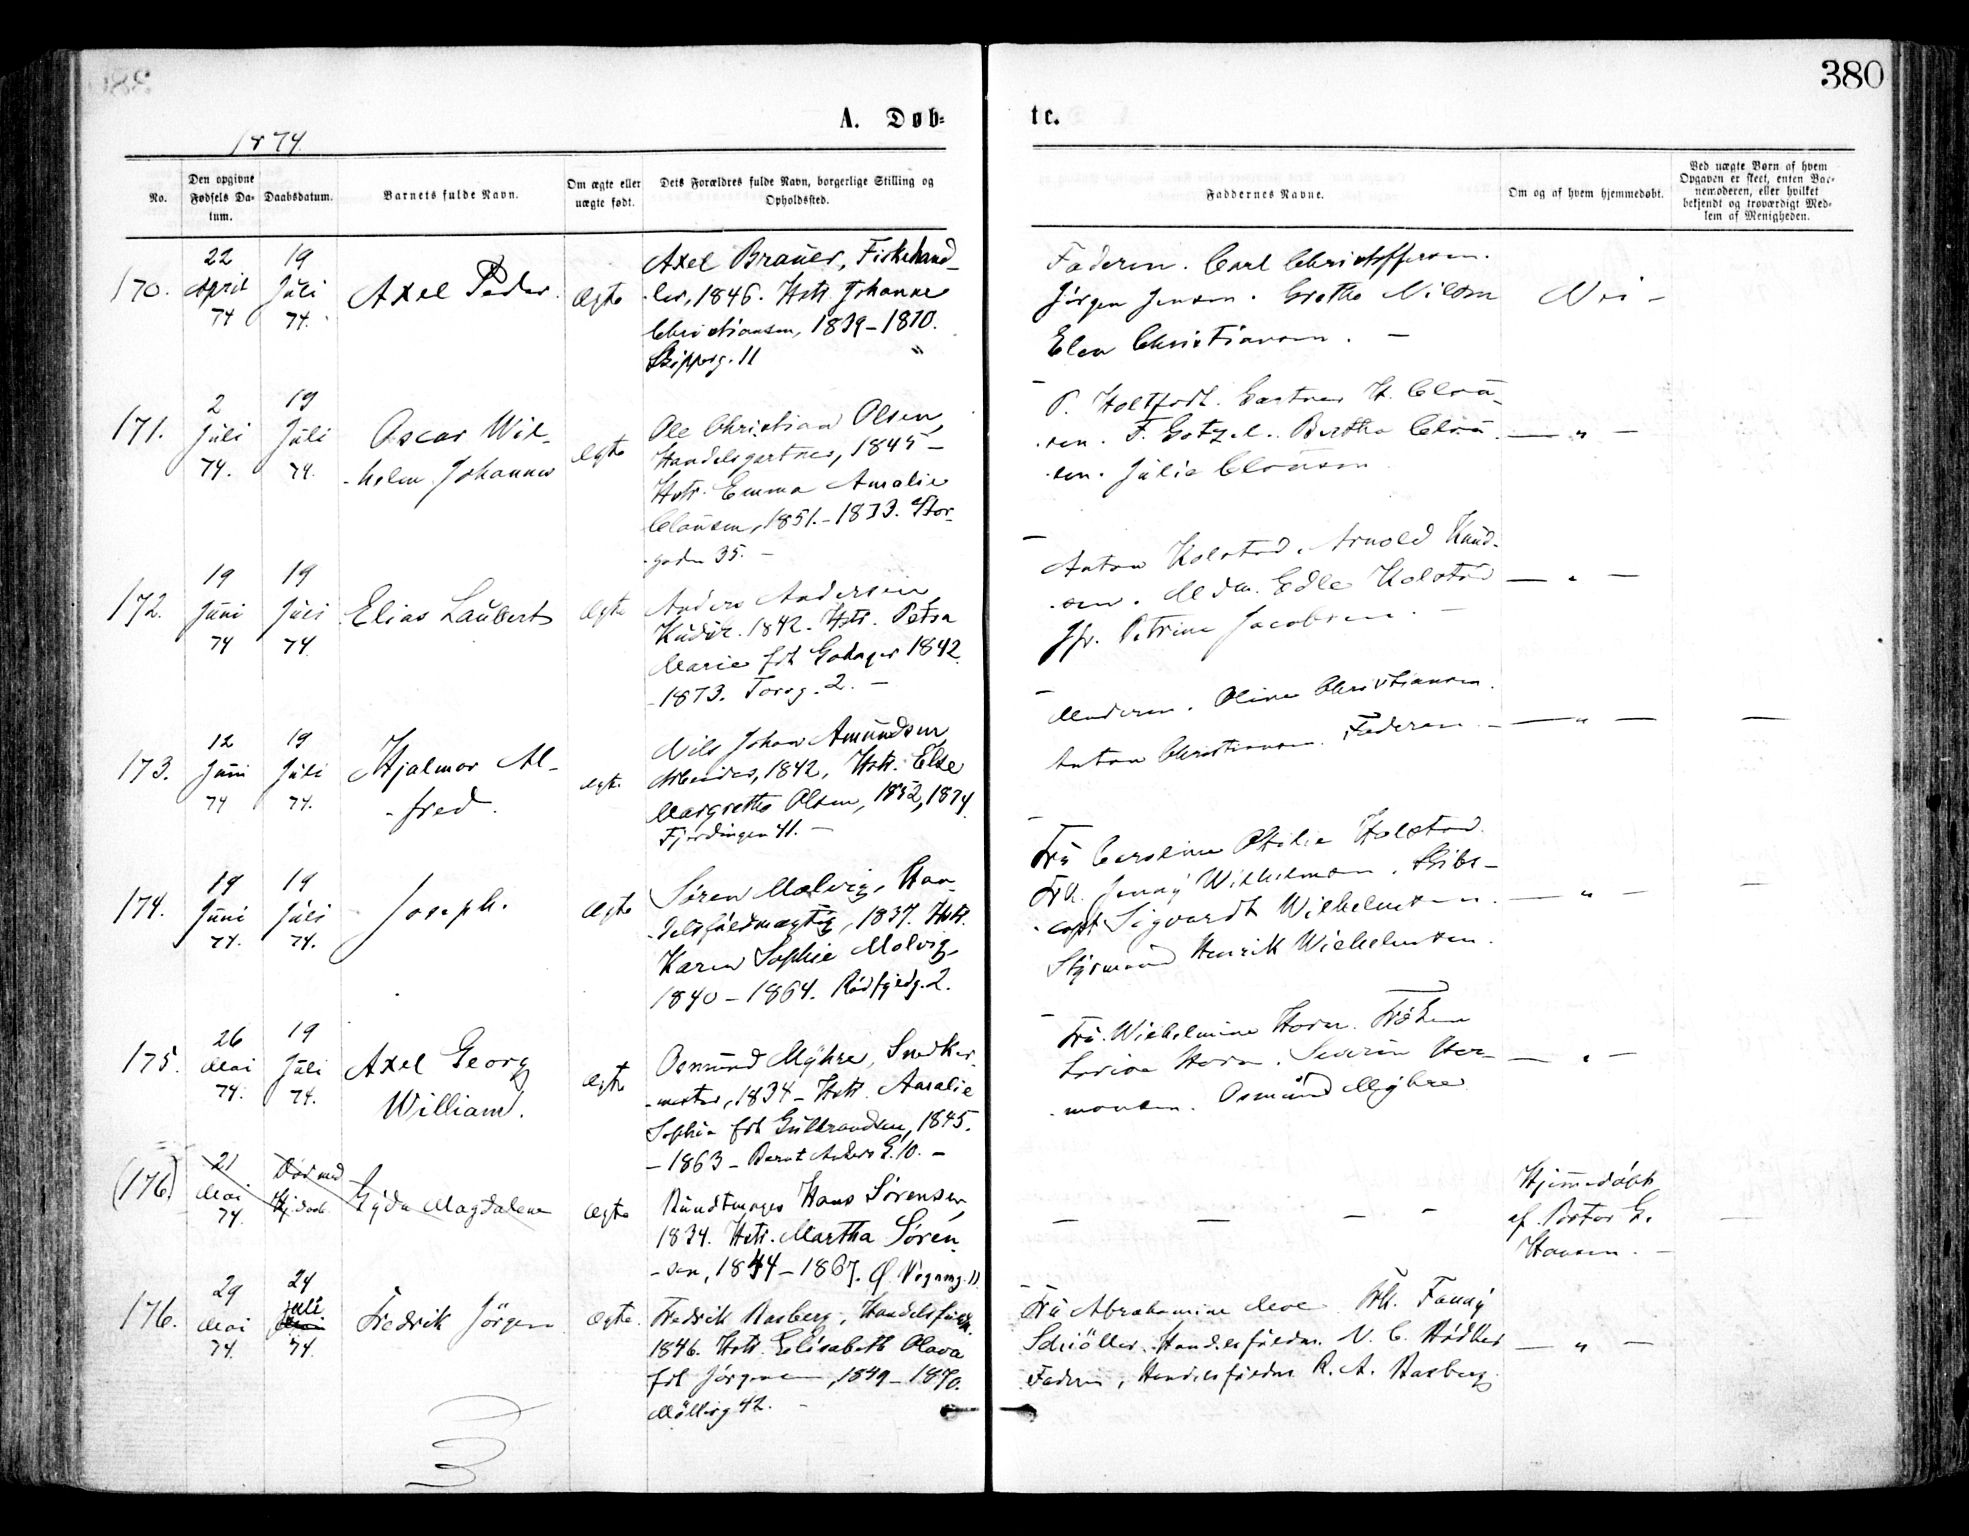 380
A. Døb-
te.
1874.
No.
Den opgivne
Fødsels Da-
tum.
Daabsdatum.
Barnets fulde Navn.
Om ægte eller
uægte født.
Dets Forældres fulde Navn, borgerlige Stilling og
Opholdssted.
Faddernes Navne.
Om og af hvem hjemmedøbt.
Ved uægte Børn af hvem
Opgaven er skeet, enten Bar-
nemoderen, eller hvilket
bekjendt og troværdigt Med-
lem af Menigheden.
170.
22
April
74
19
Juli
74.
Axel Peder.
Ægte
Axel Brauer, Fiskehand-
ler, 1846. Hstr. Johanne
Christiansen, 1839-1870.
Skipperg. 11
Faderen. Carl Christoffersen.
Jørgen Jensen. Grethe Nilsen
Elen Christiansen. -
Nei -
171.
2
Juli
74.
19
Juli
74.
Oscar Wil-
helm Johannes
Ægte
Ole Christian Olsen,
Handelsgartner, 1845 -
Hstr. Emma Amalie
Clausen, 1851. - 1873. Stor-
gaden 35. -
P. Holtfodt. Gartner H. Clau-
sen. F. Gotzel. Bertha Clau-
sen. Julie Clausen
— „ —
172.
19
Juni
74
19
Juli
74
Elias Laubert
Ægte
Anders Andersen
1842. Hstr. Petra
Marie fdt 1842.
- 1873. Torvg. 2. -
Anton Kolstad. Arnold Knud-
sen. Mdm. Edle Kolstad
Jfr. Petrine Jacobsen. -
— „ —
173.
12
Juni
74
19
Juli
74.
Hjalmar Al-
fred.
Ægte
Nils Johan Amundsen
Arbeider, 1842, Hstr. Else
Margrethe Olsen, 1852, 1874
Fjerdingen 41. -
Moderen. Oline Christiansen.
Anton Christiansen. Faderen. -
— „ — —
174.
19
Juni
74.
19
Juli
74.
Joseph.
Ægte
Søren Malvig, Han-
delsfuldmægtig, 1837. Hstr.
Karen Sophie Malvig
1840 - 1864. Rødfyldg. 2.
Fru Caroline Othilie Holstad.
Frk. Jenny Wilhelmsen. Skibs-
capt Sigvardt Wilhelmsen.
Styrmand Henrik Wilhelmsen.
— „ — —
175.
26
Mai
74.
19
Juli
74.
Axel Georg
William.
Ægte
Osmund Myhre, Snedker-
mester, 1834 - Hstr. Amalie
Sophie fdt Gulbrandsen, 1845.
- 1863 - Bernt Ankers G. 10. -
Fru Wilhelmine Horn. Frøken
Lovise Horn. Severin Her-
mansen. Osmund Myhre
— „ —
(176)
21
Mai
74.
Død med
Hj.daab
Gyda Magdalene
Ægte
Bundtmager Hans Sørensen,
1834. Hstr. Martha Søren-
sen, 1844 - 1867. Ø. Vognmg. 11
— — — —
Hjemmedøbt
af Pastor G.
Hansen. -
176.
29
Mai
74.
24
Juli
74.
Fredrik Jørgen
Ægte.
Fredrik Rasberg, Handelsfuldm.
1846. Hstr. Elisabeth Olava
fdt Jørgensen, 1849 - 1870.
Møllerg 42. -
Fru Abrahamine Moe. Frk. Fanny
Schiöller. Handelsfuldm. N. C. Rödker
Faderen, Handelsfuldm R. A. Rasberg.
— „ —